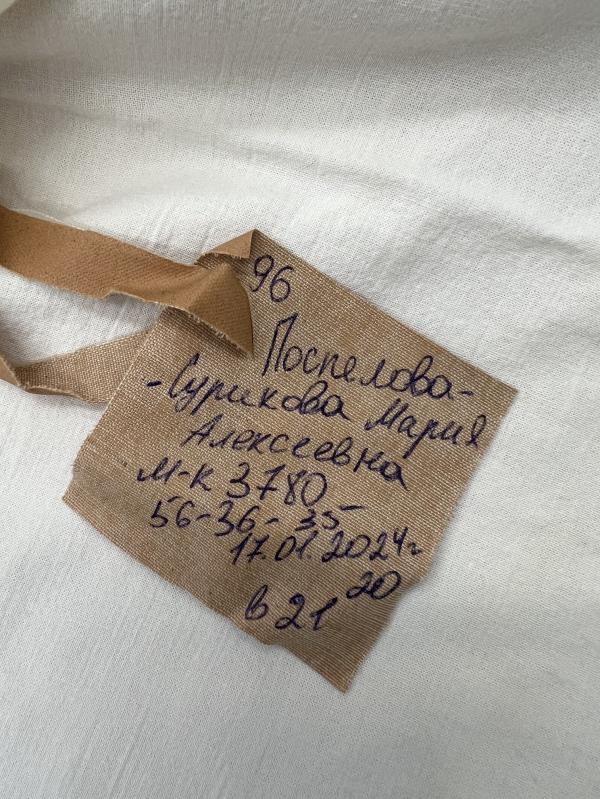 96
Поспелова-
-Сурикова Мария
Алексеевна
м-к 3780
56-36-35-
17.01.2024г
в 21 20